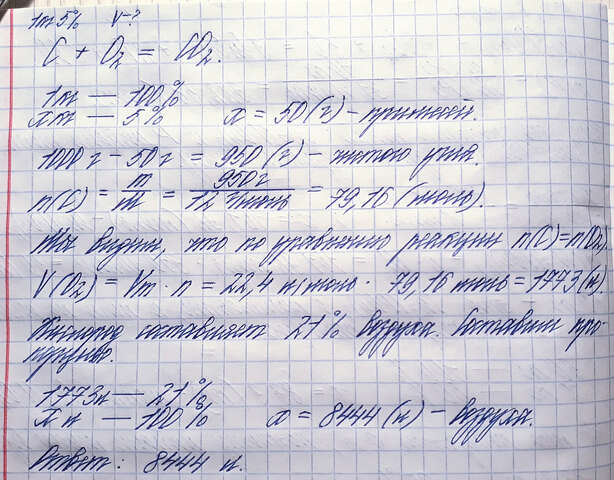 1т 5% V-?
C + O₂ = CO₂.
1т — 100%
xт — 5% x = 50 (г) - примесей.
1000 г - 50 г = 950 (г) - чистого угля.
n(C) = m/M = 950 г/12 г/моль = 79,16 (моль).
Мы видим, что по уравнению реакции n(C)=n(O₂)
V(O₂) = Vm · n = 22,4 л/моль · 79,16 моль = 1773 (л).
Кислород составляет 21% воздуха. Составим про-
порцию.
1773л — 21%
x л — 100% x = 8444 (л) - воздуха.
Ответ: 8444 л.